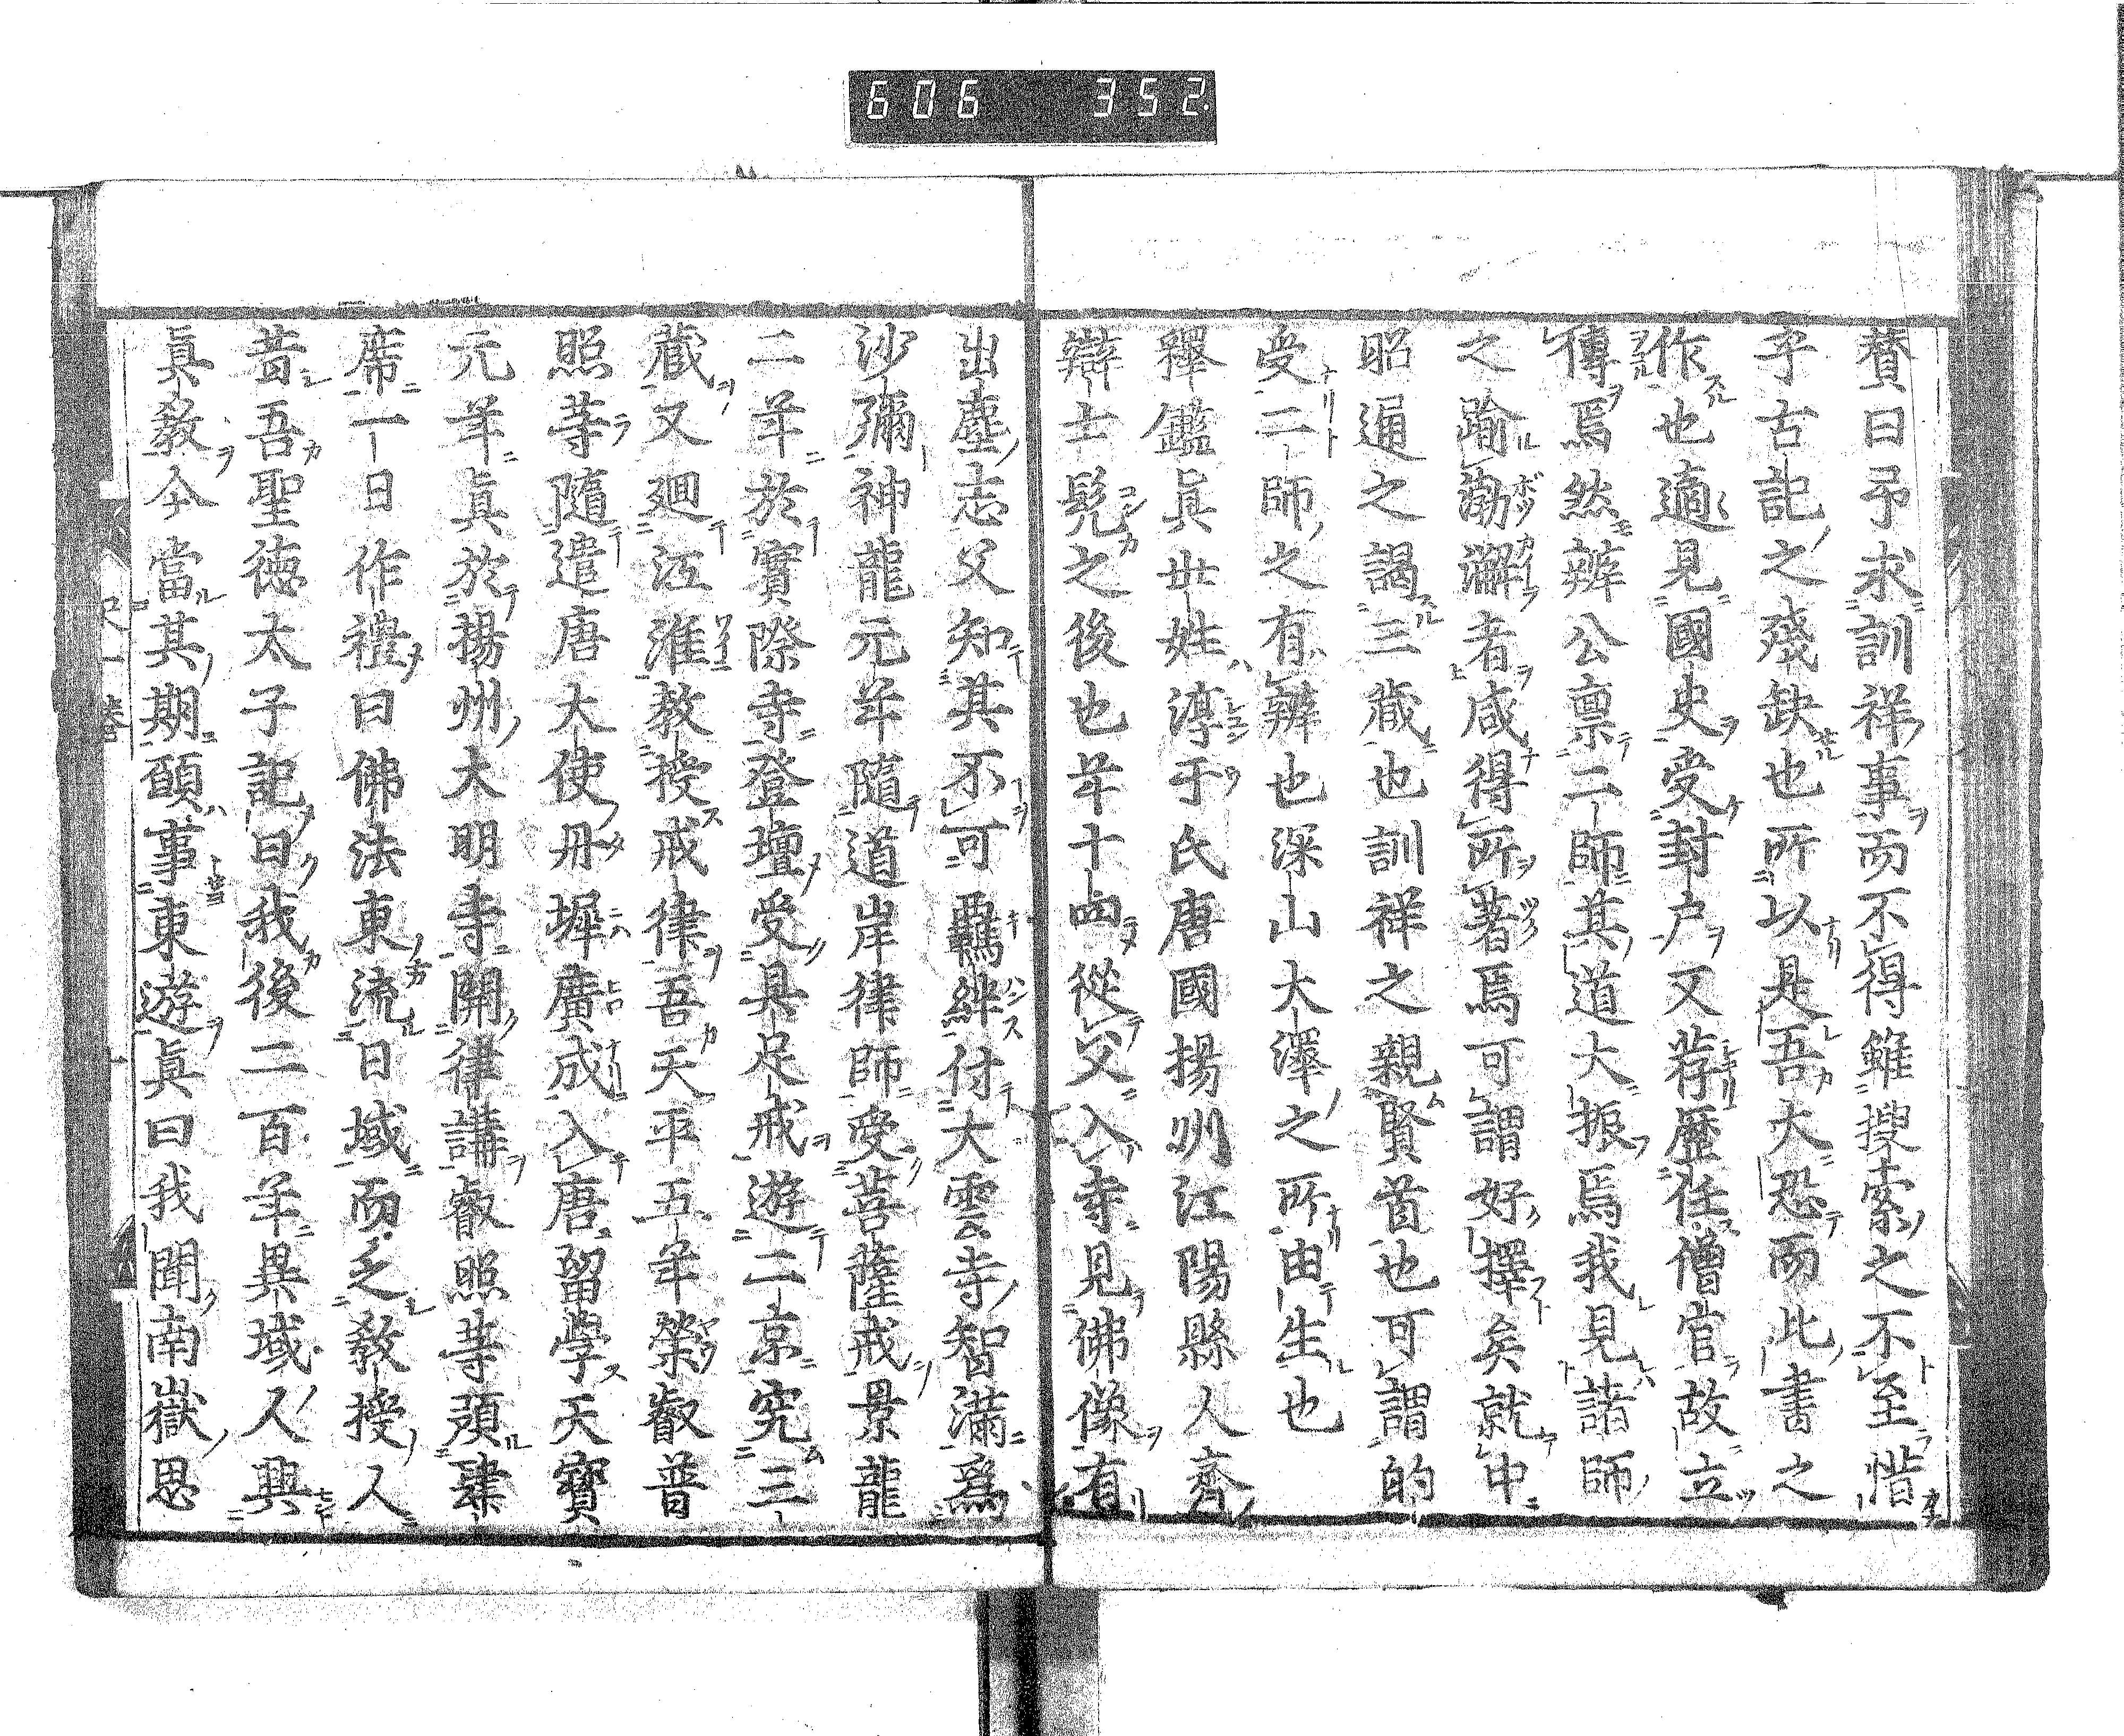 606 352
賛曰予求訓祥事而不得雖搜索之不至惜
乎古記之殘缺也所以是吾大恐而此書之
作也適見國史受封戸又荐歷任僧官故立
傳焉然辨公禀二師其道大振焉我見諸師
之踰渤澥者咸得所著焉可謂好擇矣就中
昭通之謁三藏也訓祥之親賢首也可謂的
受二師之有辨也深山大澤之所由生也
釋鑑眞世姓淳于氏唐國揚州江陽縣人齊
辯士髠之後也年十四從父入寺見佛像有
出塵志父知其不可羈絆付大雲寺智滿爲
沙彌神龍元年隨道岸律師受菩薩戒景龍
二年於實際寺登壇受具足戒遊二京究三
藏又廻江淮教授戒律吾天平五年榮叡普
照等隨遣唐大使丹墀廣成入唐留學天寶
元年眞於揚州大明寺開律講叡照等預肆
席一日作禮曰佛法東流日域而乏教授人
昔吾聖德太子記曰我後二百年異域人興
眞教今當其期願事東遊眞曰我聞南嶽思